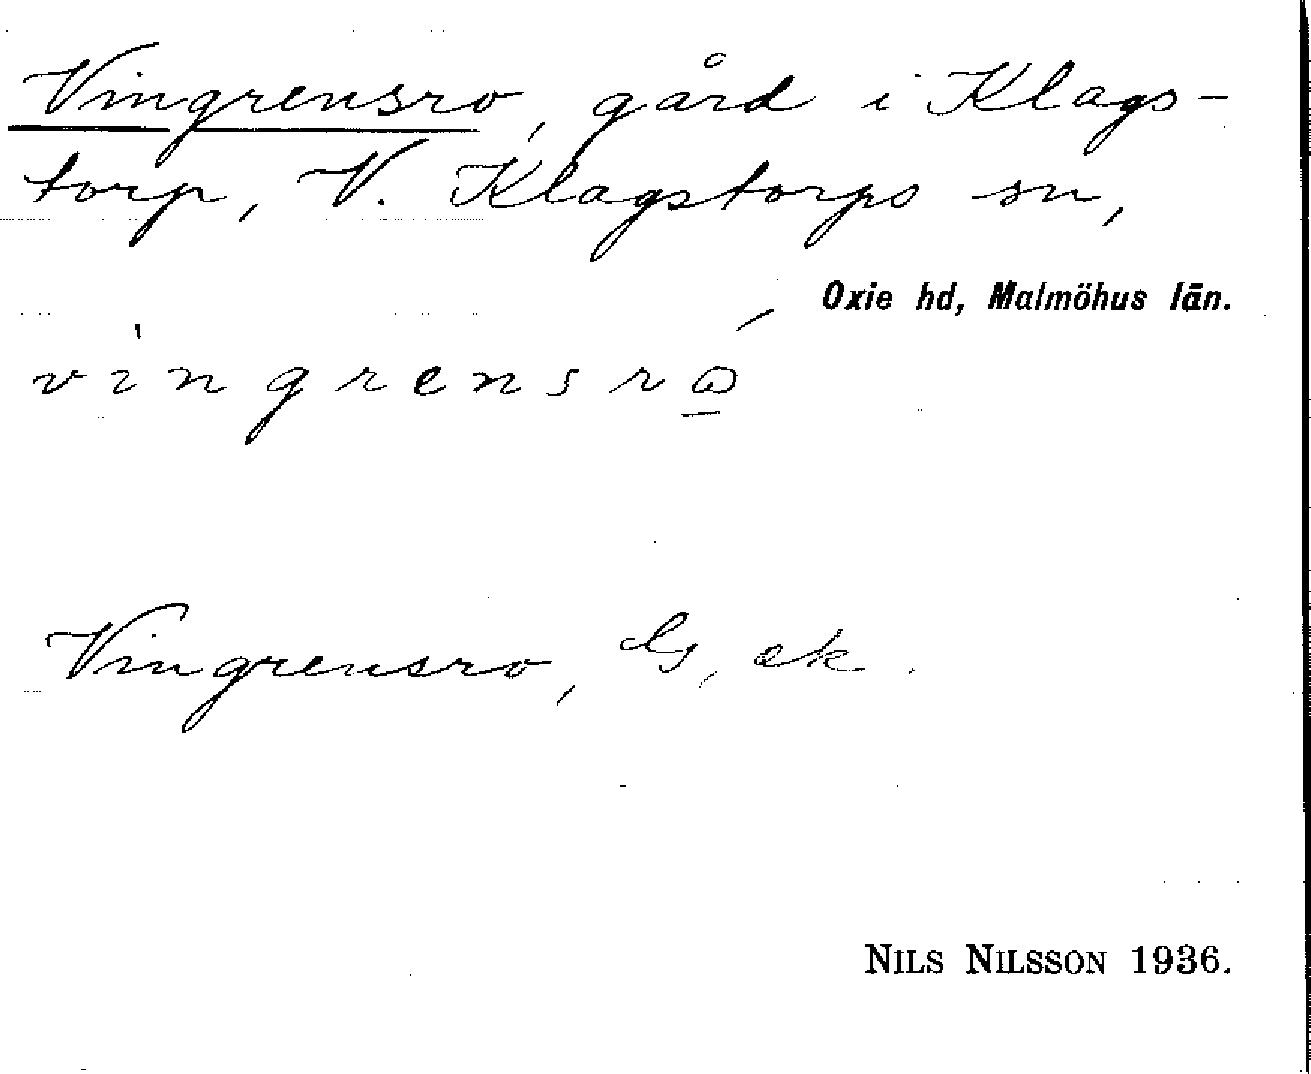 Vingrensro, gård i Klags-
torp, V. Klagstorps sn,
Oxie hd, Malmöhus län.
vingrensrω
Vingrensro, Gs, ek.
NILS NILSSON 1936.